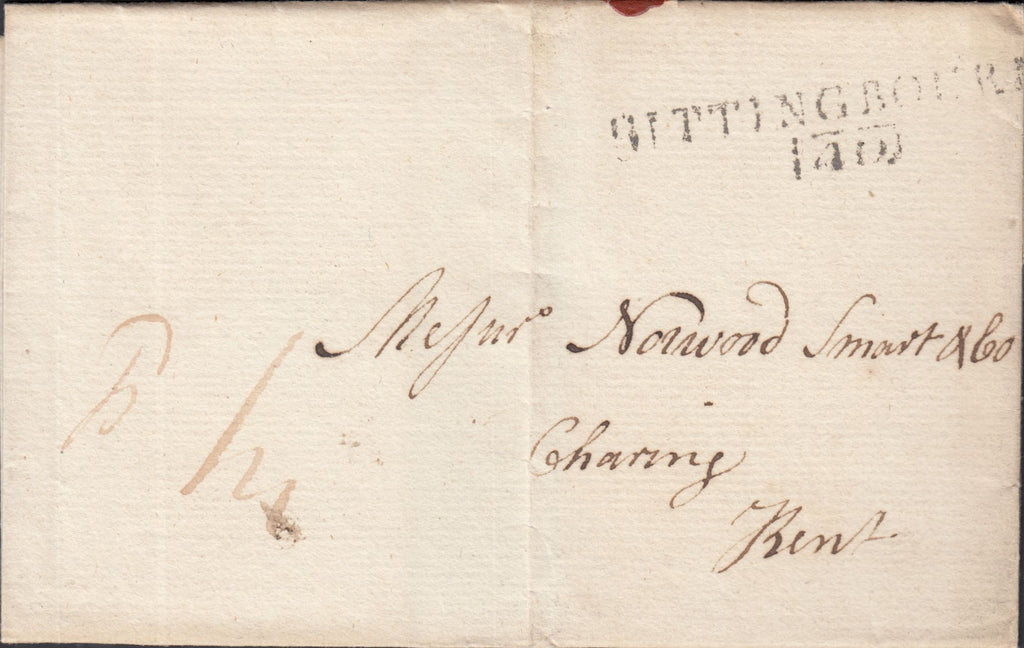 SITTINGBOURN
Messurs Norwood Smart & Co
Charing
Kent